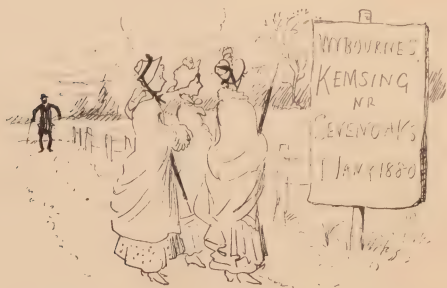 WYBOURNES
KEMSING
NR
SEVENOAKS
1 JANY 1880